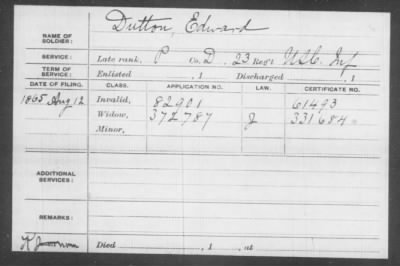 NAME OF SOLDIER: Dutton, Edward
SERVICE: Late rank, P Co. D, 23 Reg't U.S.C. Inf
TERM OF SERVICE: Enlisted , 1 Discharged , 1
DATE OF FILING. CLASS. APPLICATION NO. LAW. CERTIFICATE NO.
1865 Aug 12 Invalid, 82901 61493
Widow, 372787 J 331684
Minor,
ADDITIONAL SERVICES:
REMARKS:
Died , 1 , at